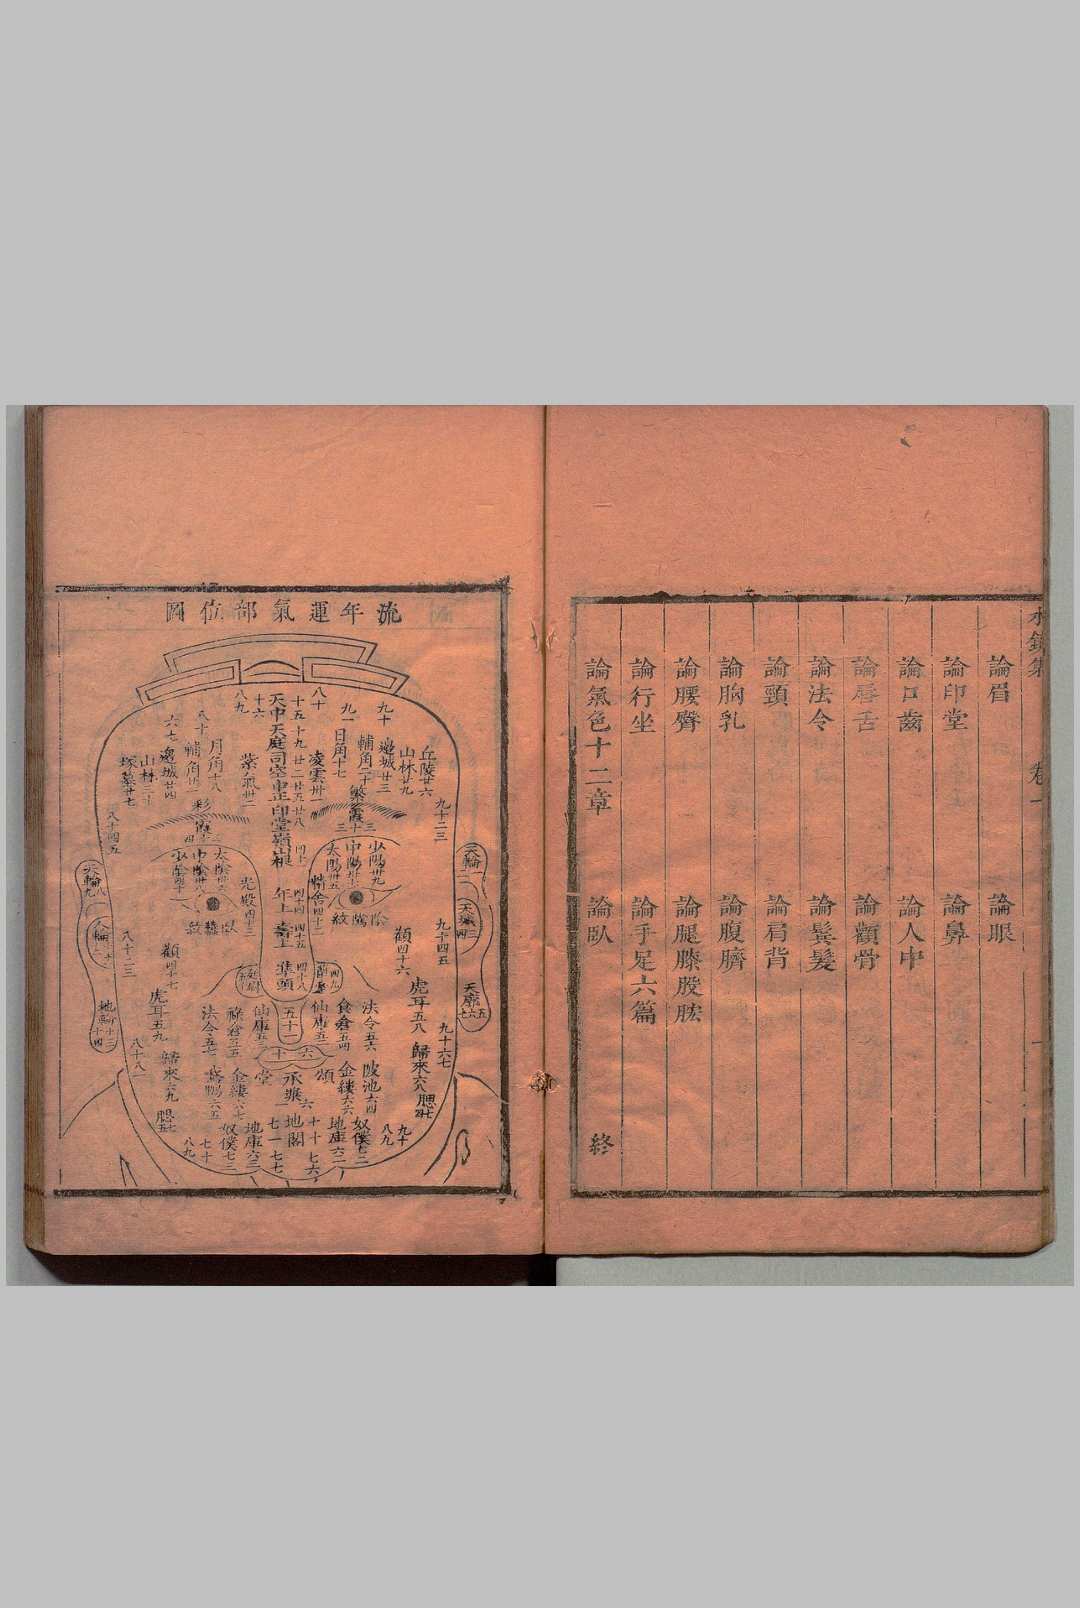 水鏡集
卷一
論眉
論眼
論印堂
論鼻
論口齒
論人中
論唇舌
論顴骨
論法令
論鬢髮
論頸
論肩背
論胸乳
論腹臍
論腰臀
論腿膝股肱
論行坐
論手足六篇
論氣色十二章
論臥
終
流年運氣部位圖
丘陵廿六
山林廿九
邊城廿三
輔角二十
日角十七
凌雲卅一
繁霞三十三
天中
天庭
司空
中正
印堂
山根
年上
壽上
準頭
十六
十五
十九
廿二
廿五
廿八
四十四
四十五
四十八
紫氣卅二
月角十八
輔角廿一
邊城廿四
山林三十
塚墓廿七
彩霞
少陽卅九
中陽卅七
太陽卅五
太陰卅六
中陰卅八
少陰四十
光殿四十三
精舍四十二
陰騭紋
臥蠶紋
顴四十六
顴四十七
虎耳五八
虎耳五九
歸來六八
歸來六九
天輪一二
天城三四
天廓五六七
天輪八九
人輪
地輪十三十四
法令五六
食倉五四
仙庫五二
五十一
仙庫五三
祿倉五五
法令五七
陂池六四
金縷六六
頌堂
承漿六一
金縷六七
鵝鴨六五
奴僕七二
地庫六二
地閣
地庫六三
奴僕七三
腮
九十二三
九十四五
九十六七
八十四五
八十二三
八十一